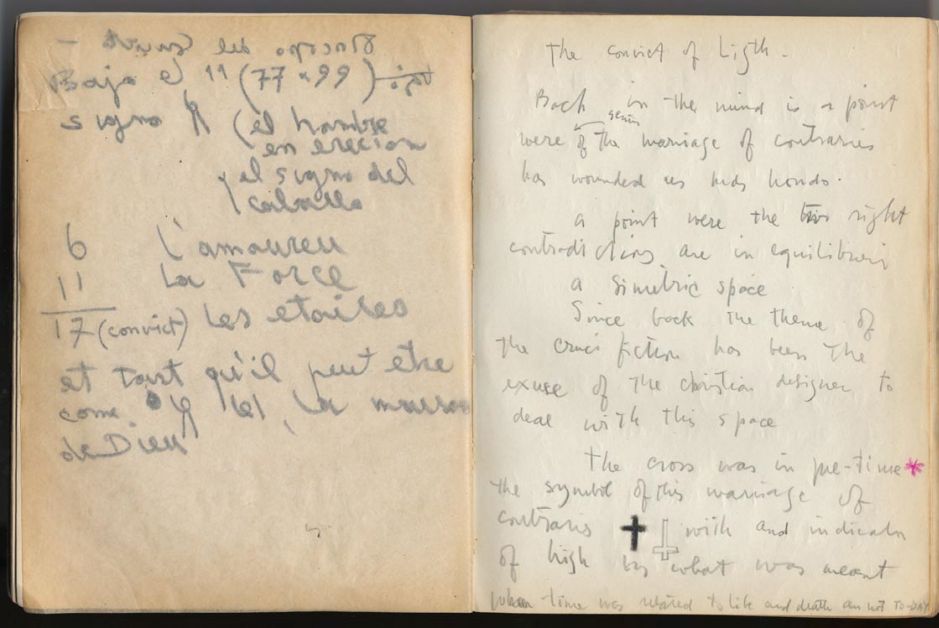 Bajo el 11 (77 × 99)
signo (el hombre
en ereccion
y el signo del
caballo
6 L'amoureu
11 La Force
17 (convict) Les etoiles
et tout qu'il peut etre
come la maison
de Dieu
The convict of Ligth -
Back in the mind is a point
were of the marriage of contraries
has wounded us mas hondo.
a point were the two right
contradictions are in equilibrium
a Simetric space
Since back the theme of
the cruci fiction has been the
excuse of the christian designer to
deal with this space
the cross was in pre-time *
the symbol of this marriage of
contraris with and indicator
of high by what was meant
when time was related to life and death an not TO-DAY